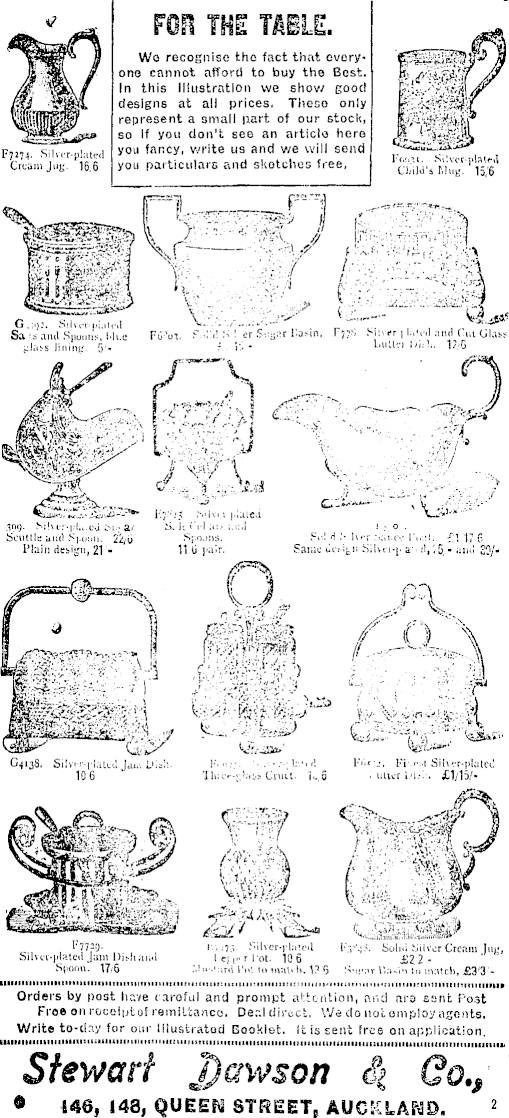 FOR THE TABLE.
We recognise the fact that every-
one cannot afford to buy the Best.
In this Illustration we show good
designs at all prices. These only
represent a small part of our stock,
so if you don't see an article here
you fancy, write us and we will send
you particulars and sketches free,
F7274. Silver-plated
Cream Jug. 16/6
Silver-plated
Child's Mug. 15/6
Silver-plated
and Spoons, blue
glass lining. 5/-
Solid Silver Sugar Basin.
F778. Silver plated and Cut Glass
Butter Dish. 12/6
309. Silver-plated Sugar
Scuttle and Spoon. 22/6
Plain design, 21/-
Silver plated
Salt Cellars and
Spoons.
11/6 pair.
Solid Silver Sauce Boat. £1 17/6
Same design Silver-plated, and 30/-
G4138. Silver-plated Jam Dish.
10/6
Silver-plated
Three-glass Cruet.
Finest Silver-plated
Butter Dish. £1/15/-
F7729.
Silver-plated Jam Dish and
Spoon. 17/6
Silver-plated
Pepper Pot. 10/6
Mustard Pot to match, 12/6
Solid Silver Cream Jug,
£2/2/-
Sugar Basin to match, £3/3/-
Orders by post have careful and prompt attention, and are sent Post
Free on receipt of remittance. Deal direct. We do not employ agents.
Write to-day for our Illustrated Booklet. It is sent free on application.
Stewart Dawson & Co.,
146, 148, QUEEN STREET, AUCKLAND. 2